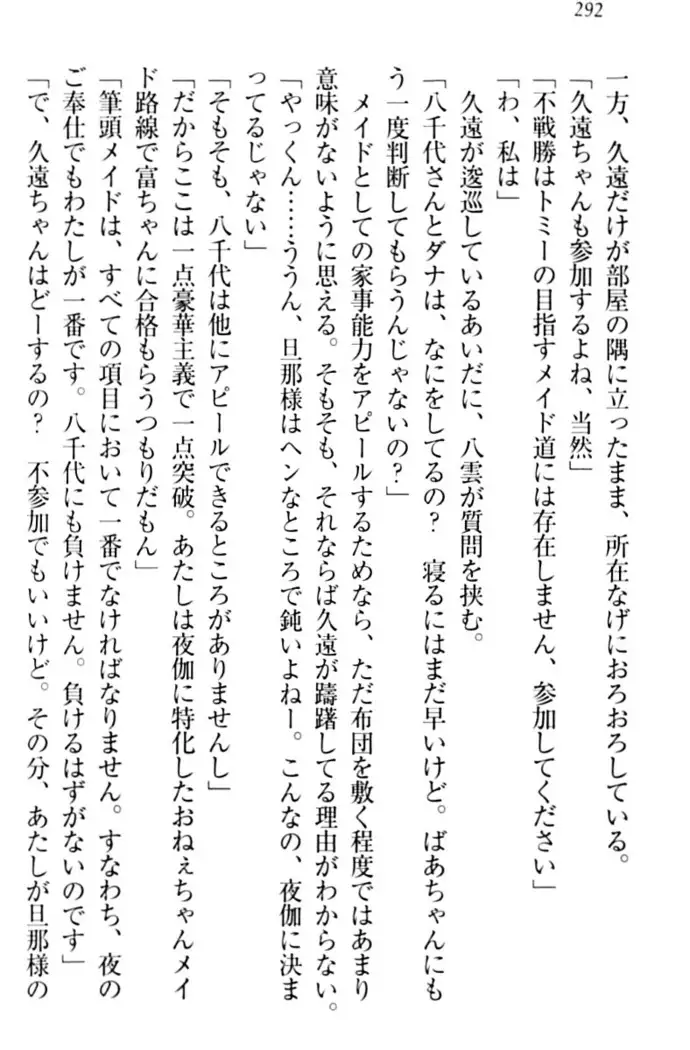 292
一方、久遠だけが部屋の隅に立ったまま、所在なげにおろおろしている。
「久遠ちゃんも参加するよね、当然」
「不戦勝はトミーの目指すメイド道には存在しません、参加してください」
「わ、私は」
久遠が逡巡しているあいだに、八雲が質問を挟む。
「八千代さんとダナは、なにをしてるの？　寝るにはまだ早いけど。ばあちゃんにも
う一度判断してもらうんじゃないの？」
メイドとしての家事能力をアピールするためなら、ただ布団を敷く程度ではあまり
意味がないように思える。そもそも、それならば久遠が躊躇してる理由がわからない。
「やっくん……ううん、旦那様はヘンなところで鈍いよねー。こんなの、夜伽に決ま
ってるじゃない」
「そもそも、八千代は他にアピールできるところがありませんし」
「だからここは一点豪華主義で一点突破。あたしは夜伽に特化したおねぇちゃんメイ
ド路線で富ちゃんに合格もらうつもりだもん」
「筆頭メイドは、すべての項目において一番でなければなりません。すなわち、夜の
ご奉仕でもわたしが一番です。八千代にも負けません。負けるはずがないのです」
「で、久遠ちゃんはどーするの？　不参加でもいいけど。その分、あたしが旦那様の